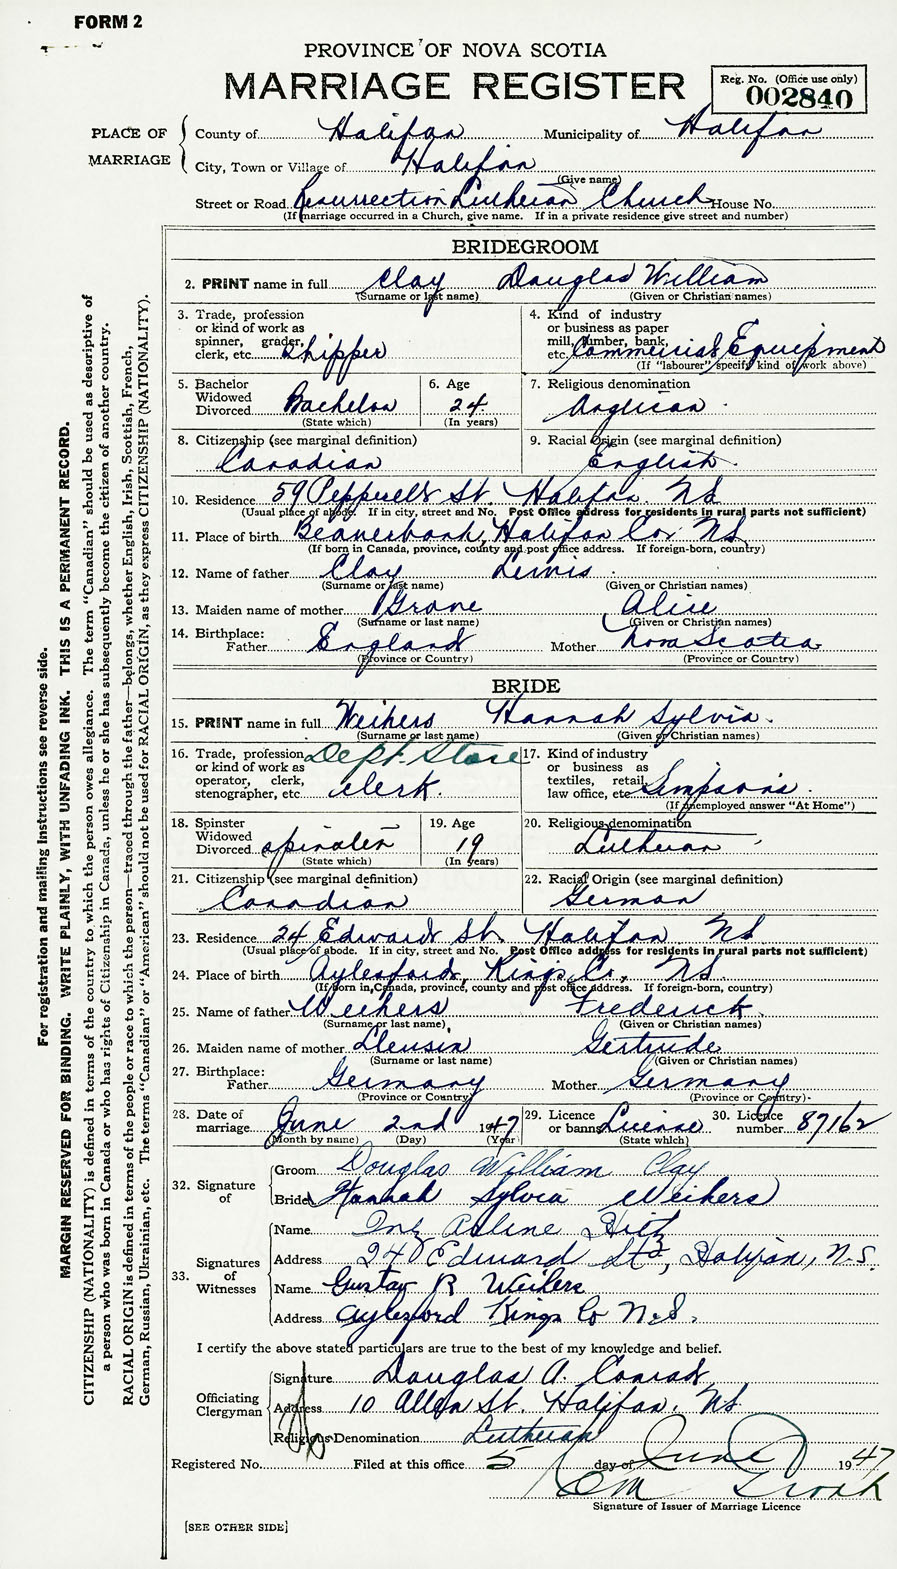 FORM 2
PROVINCE OF NOVA SCOTIA
MARRIAGE REGISTER
Reg. No. (Office use only)
002840
PLACE OF MARRIAGE
County of Halifax Municipality of Halifax
City, Town or Village of Halifax
(Give name)
Street or Road Resurrection Lutheran Church House No.
(If marriage occurred in a Church, give name. If in a private residence give street and number)
BRIDEGROOM
2. PRINT name in full Clay Douglas William
(Surname or last name) (Given or Christian names)
3. Trade, profession or kind of work as spinner, grader, clerk, etc. Shipper
4. Kind of industry or business as paper mill, lumber, bank, etc. Commercial Equipment
(If "labourer" specify kind of work above)
5. Bachelor Widowed Divorced Bachelor
(State which)
6. Age 24
(In years)
7. Religious denomination Anglican
8. Citizenship (see marginal definition) Canadian
9. Racial Origin (see marginal definition) English
10. Residence 59 Pepperell St. Halifax. NS
(Usual place of abode. If in city, street and No. Post Office address for residents in rural parts not sufficient)
11. Place of birth Beaverbank, Halifax Co. NS
(If born in Canada, province, county and post office address. If foreign-born, country)
12. Name of father Clay
(Surname or last name) (Given or Christian names)
13. Maiden name of mother Grove Alice
(Surname or last name) (Given or Christian names)
14. Birthplace: Father England Mother Nova Scotia
(Province or Country) (Province or Country)
BRIDE
15. PRINT name in full Weihers Hannah Sylvia.
(Surname or last name) (Given or Christian names)
16. Trade, profession or kind of work as operator, clerk, stenographer, etc Dept. Store clerk.
17. Kind of industry or business as textiles, retail, law office, etc Simpson's.
(If unemployed answer "At Home")
18. Spinster Widowed Divorced spinster
(State which)
19. Age 19
(In years)
20. Religious denomination Lutheran
21. Citizenship (see marginal definition) Canadian
22. Racial Origin (see marginal definition) German
23. Residence 24 Edward St. Halifax NS
(Usual place of abode. If in city, street and No. Post Office address for residents in rural parts not sufficient)
24. Place of birth Aylesford, Kings Co, NS.
(If born in Canada, province, county and post office address. If foreign-born, country)
25. Name of father Weihers Frederick
(Surname or last name) (Given or Christian names)
26. Maiden name of mother Gertrude
(Surname or last name) (Given or Christian names)
27. Birthplace: Father Germany Mother Germany
(Province or Country) (Province or Country)
28. Date of marriage June 2nd 1947
(Month by name) (Day) (Year)
29. Licence or banns License
(State which)
30. Licence number 87162
32. Signature of
Groom Douglas William Clay
Bride Hannah Sylvia Weihers
33. Signatures of Witnesses
Name Arline
Address 24 Edward St, Halifax, N.S.
Name Gustav R Weihers
Address Aylesford Kings Co N.S.
I certify the above stated particulars are true to the best of my knowledge and belief.
Officiating Clergyman
Signature Douglas A. Conrad
Address 10 Allen St. Halifax, NS
Religious Denomination Lutheran
Registered No. Filed at this office 5 day of June 1947
Signature of Issuer of Marriage Licence
[SEE OTHER SIDE]
For registration and mailing instructions see reverse side.
MARGIN RESERVED FOR BINDING. WRITE PLAINLY, WITH UNFADING INK. THIS IS A PERMANENT RECORD.
CITIZENSHIP (NATIONALITY) is defined in terms of the country to which the person owes allegiance. The term "Canadian" should be used as descriptive of
a person who was born in Canada or who has rights of Citizenship in Canada, unless he or she has subsequently become the citizen of another country.
RACIAL ORIGIN is defined in terms of the people or race to which the person—traced through the father—belongs, whether English, Irish, Scottish, French,
German, Russian, Ukrainian, etc. The terms "Canadian" or "American" should not be used for RACIAL ORIGIN, as they express CITIZENSHIP (NATIONALITY).